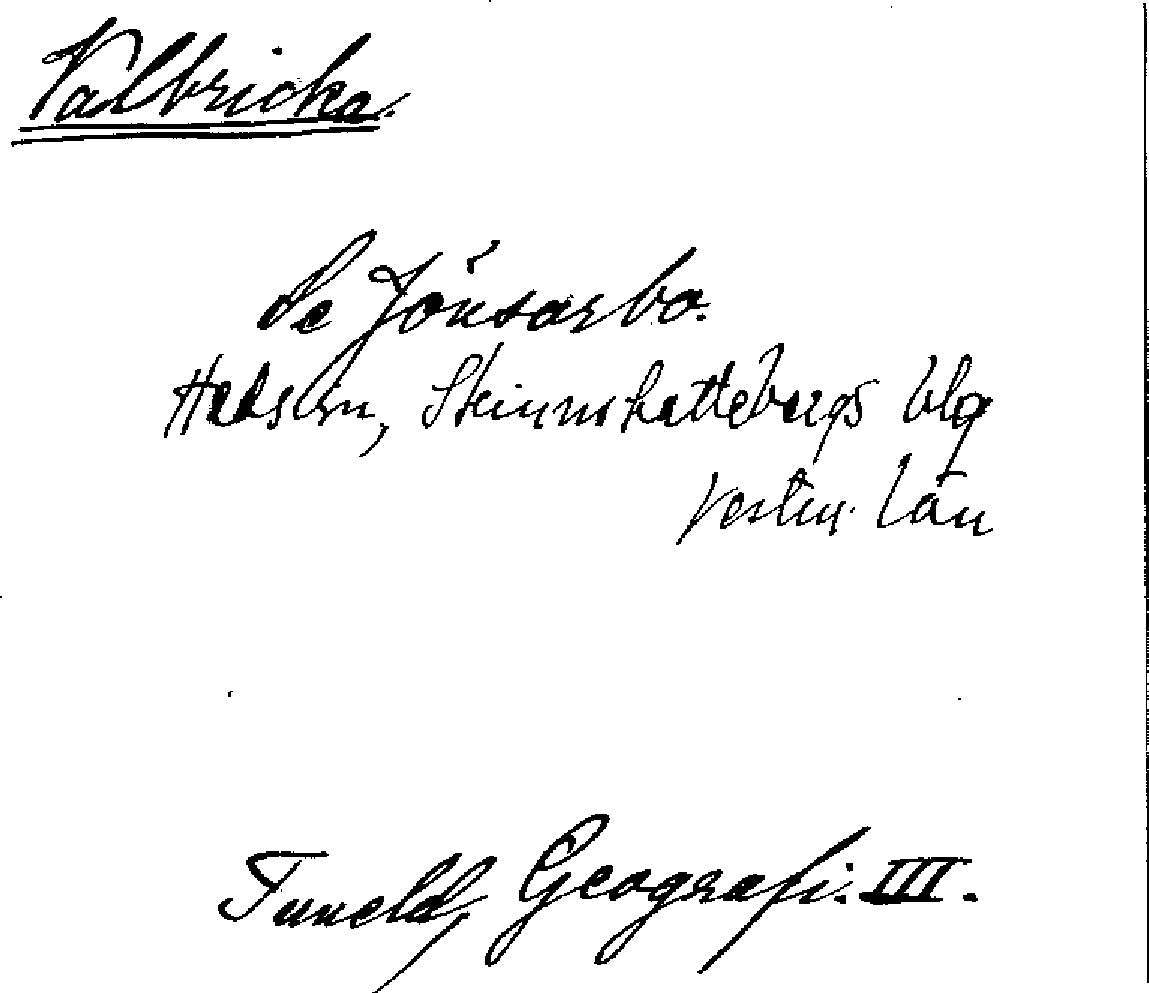 Valbricka.
Se Jönsarbo.
Hed sn, Skinnskattebergs blg
Vestm. län
Tuneld, Geografi. III.